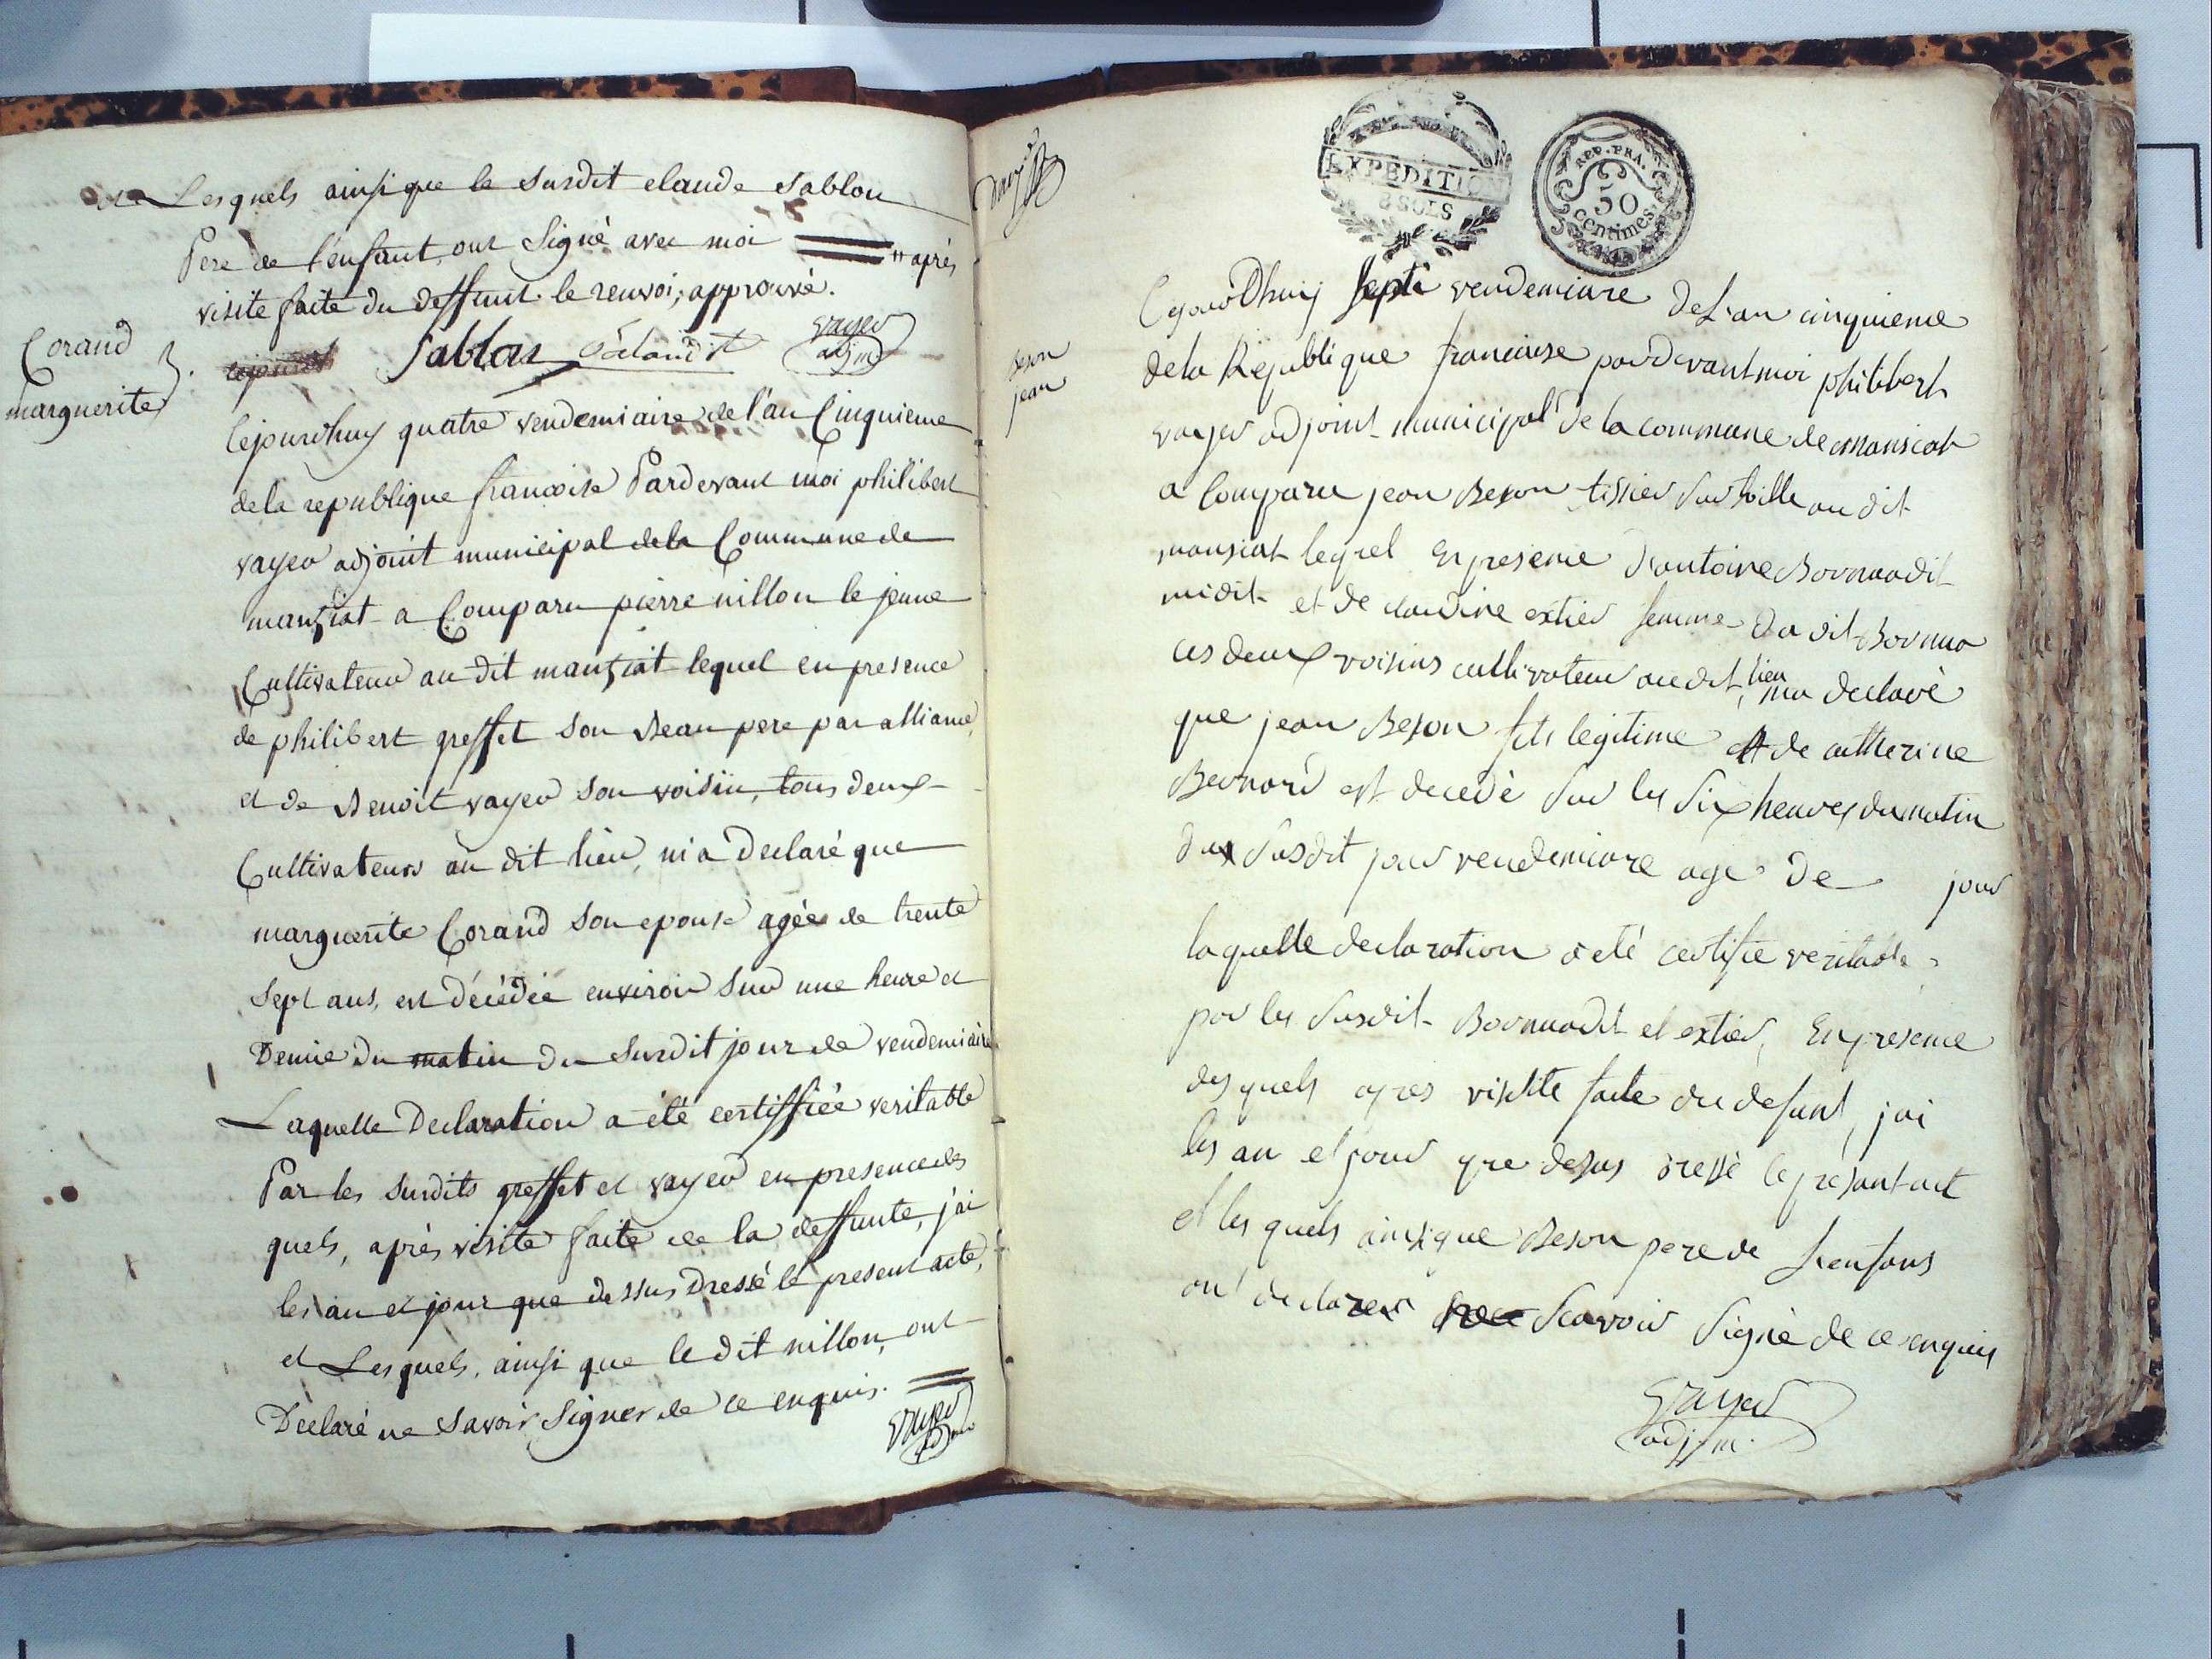 et Lesquels ainsi que le susdit claude Sablon
Pere de l'enfant, ont Signé avec moi " après
visite faite du deffunt. le renvoi, approuvé.
Sablon vayer adj m
Corand
marguerite
Cejourdhuy quatre vendemiaire de l'an Cinquieme
de la republique francoise Pardevant moi philibert
vayer adjoint municipal de la Commune de
mansiat a Comparu pierre nillon le jeune
Cultivateur au dit mansiat lequel en presence
de philibert greffet son Beau pere par alliance,
et de Benoit vayer son voisin, tous deux
Cultivateurs au dit lieu, m'a Declaré que
marguerite Corand son epouse agée de trente
sept ans, est décédée environ sur une heure et
Demie du matin du susdit jour de vendemiaire
Laquelle Declaration a été certiffiée veritable
Par les susdits greffet et vayer en presence des
quels, après visite faite de la deffunte, j'ai
les an et jour que dessus Dressé le present acte,
et Lesquels, ainsi que le dit nillon, ont
Déclaré ne savoir Signer de ce enquis.
vayer
adj m
EXPÉDITION
8 SOLS
REP. FRA.
50
centimes.
Beson
jean
Cejourdhuij septe vendemiare de L'an cinquieme
de la Republique francaise pardevant moi philibert
vayer adjoint municipal de la commune de mansiat
a Comparu jean Beson tissier sur toille au dit
mansiat lequel En presence d'antoine Bornuadit
midit et de claudine extier femme du dit Bornua
ces deux voisins cultivateur au dit lieu, ma declaré
que jean Beson fils legitime et de catherine
Bernard est decedé sur les six heures du matin
du susdit jour vendemiare age de jour
laquelle declaration a eté certifie veritable
par les susdit Bornuadit et extier, En presence
des quels apres visitte faite du defunt, jai
les an et jour que desus dressé le présant act
et les quels ainsi que Beson pere de L'enfans
on declarer Scavoir Signé de ce enquis
vayer
adj m.